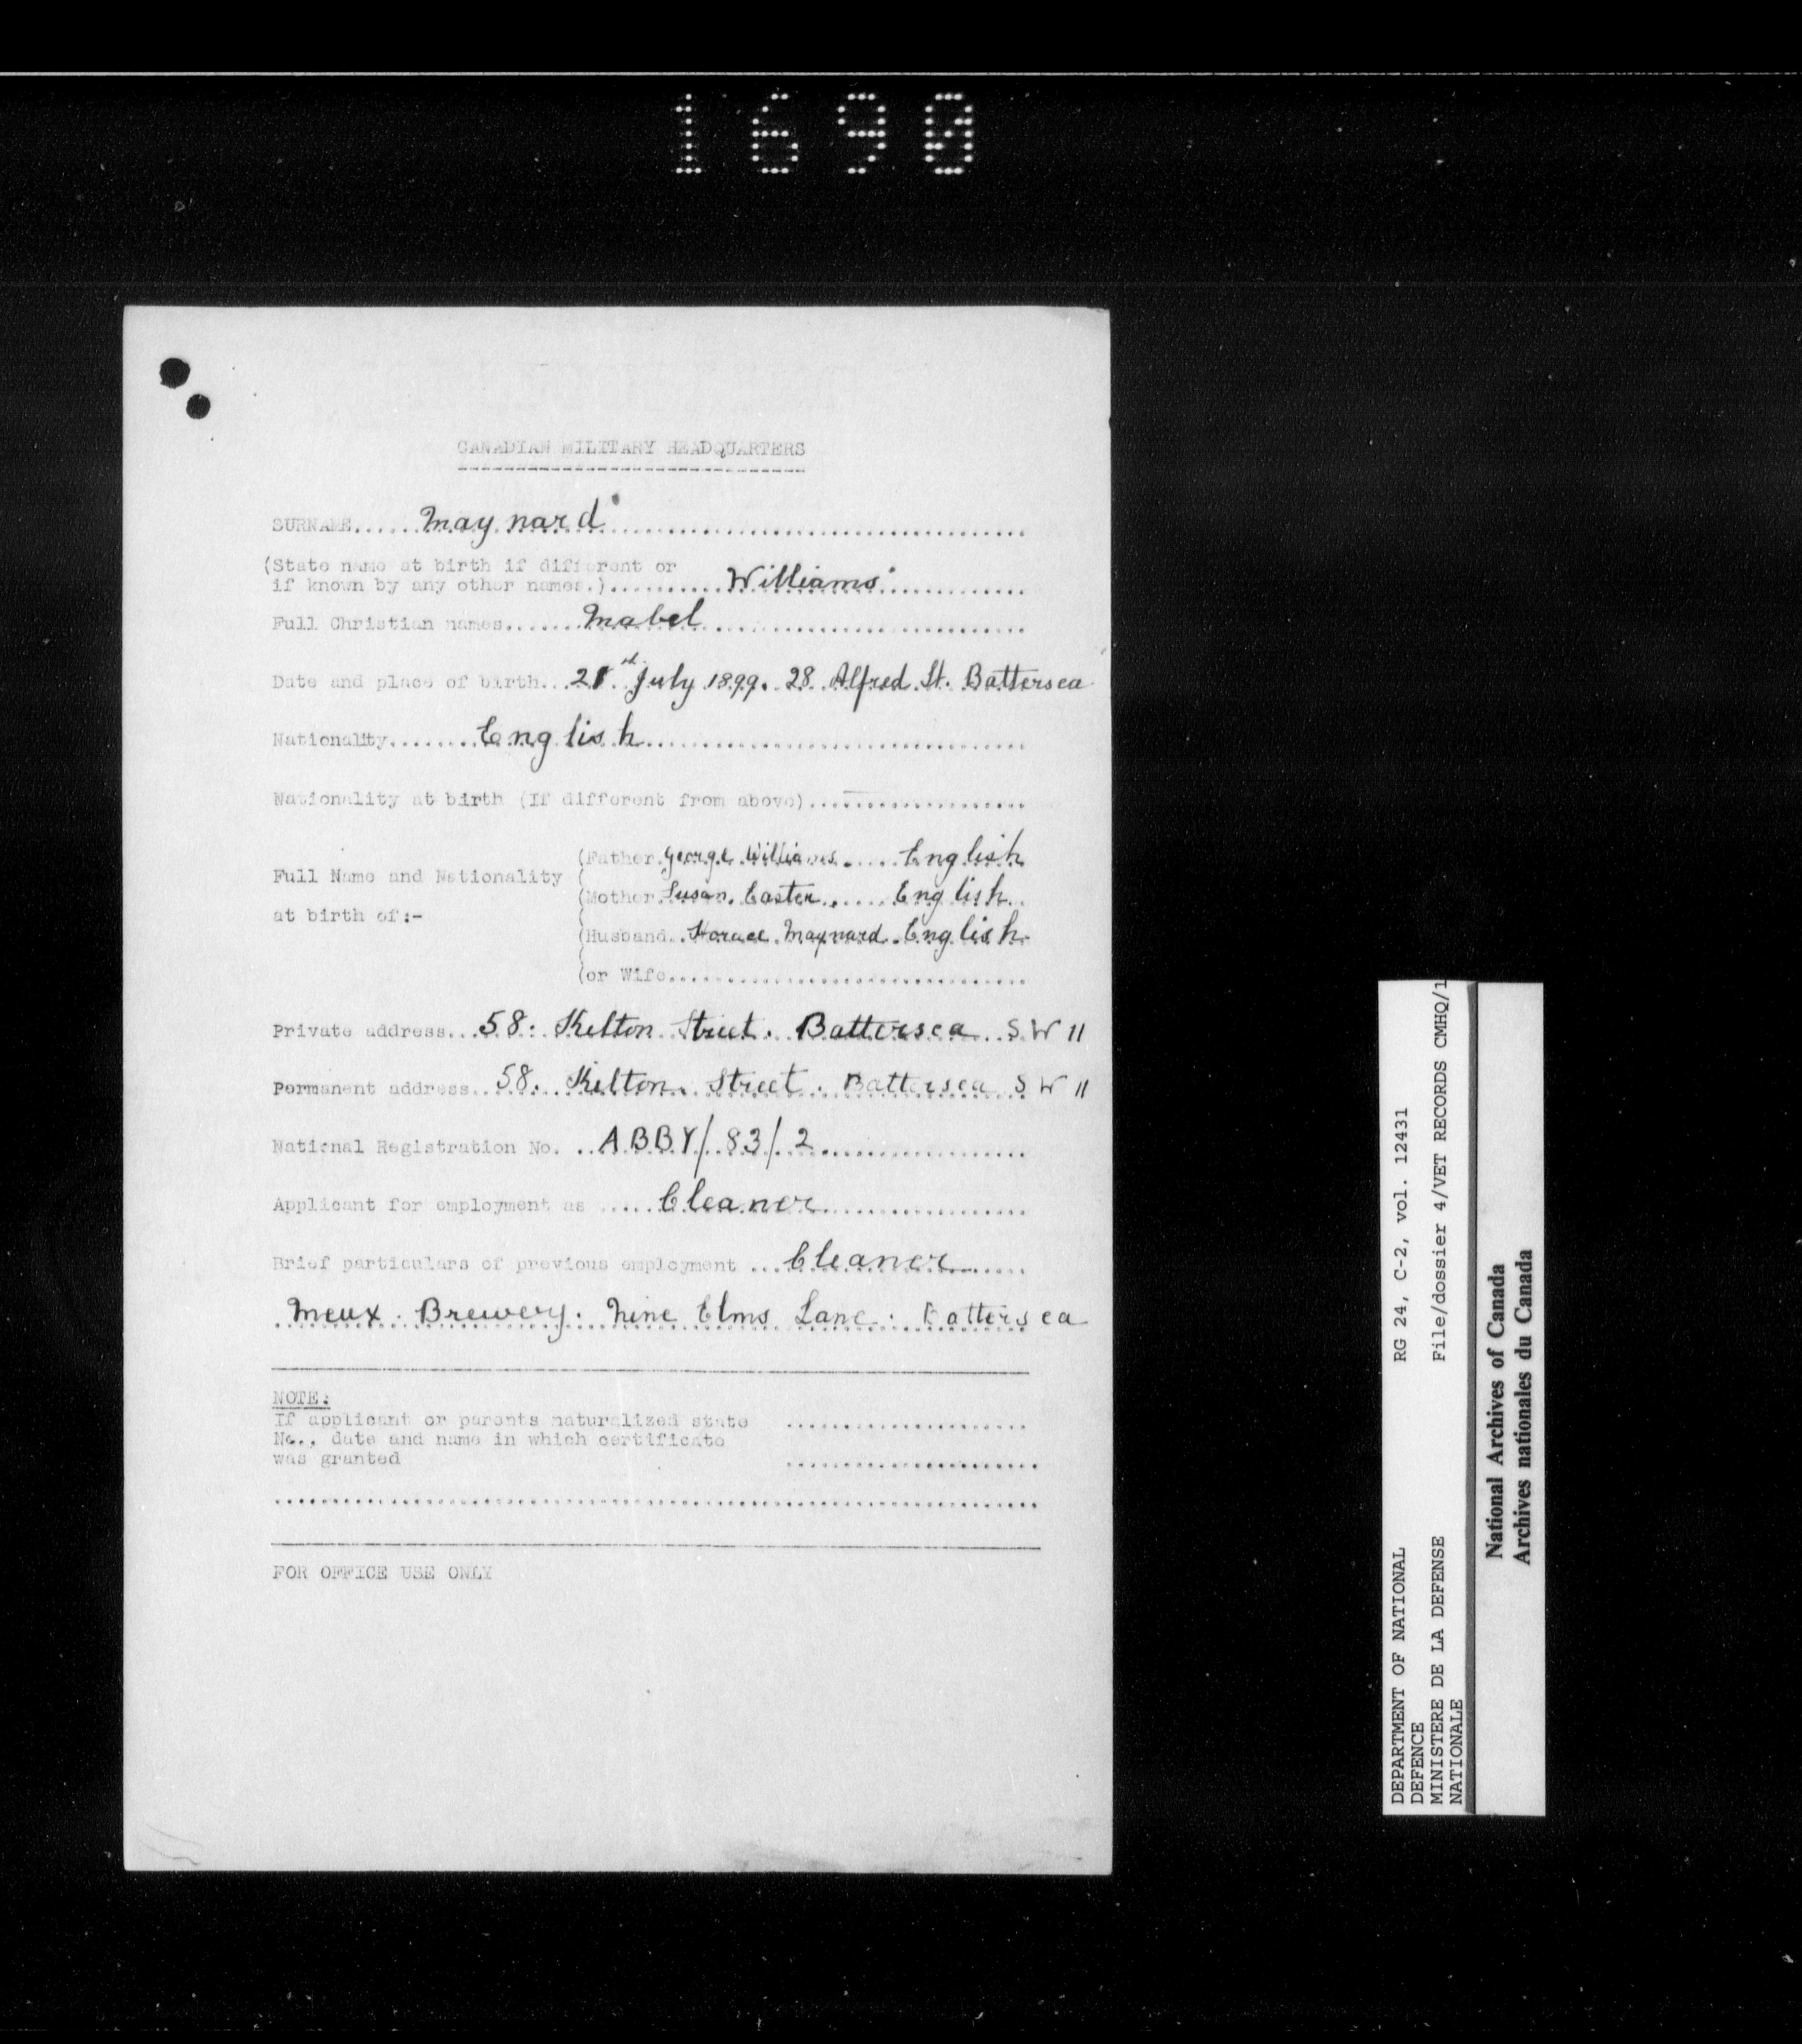 1690
CANADIAN MILITARY HEADQUARTERS
SURNAME..... Maynard
(State name at birth if different or
if known by any other names.).......... Williams
Full Christian names....... Mabel
Date and place of birth... 21st July 1899. 28 Alfred St. Battersea
Nationality........ English
Nationality at birth (If different from above)....................
Full Name and Nationality
at birth of:-
(Father. George Williams..... English
(Mother. Susan. Easter...... English
(Husband.. Horace Maynard. English
(or Wife..................................
Private address... 58. Kelton Street. Battersea S W 11
Permanent address.. 58. Kelton Street. Battersea S W 11
National Registration No. .. ABBY/ 83/ 2
Applicant for employment as ..... Cleaner
Brief particulars of previous employment ... Cleaner
Meux. Brewery. Nine Elms Lane. Battersea
NOTE:
If applicant or parents naturalized state
No., date and name in which certificate
was granted
FOR OFFICE USE ONLY
DEPARTMENT OF NATIONAL DEFENCE
MINISTERE DE LA DEFENSE NATIONALE
RG 24, C-2, vol. 12431
File/dossier 4/VET RECORDS CMHQ/1
National Archives of Canada
Archives nationales du Canada